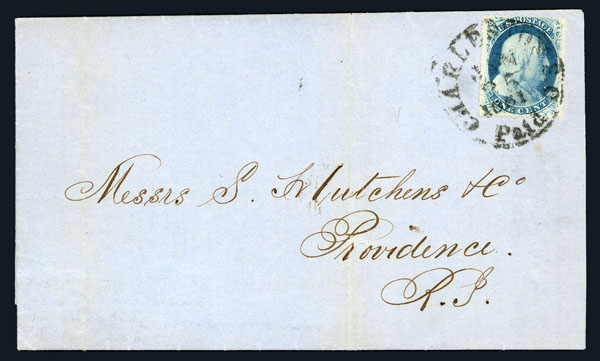 U.S. POSTAGE
ONE CENT
Paid
Messrs S. Hutchens & Co
Providence.
R.I.